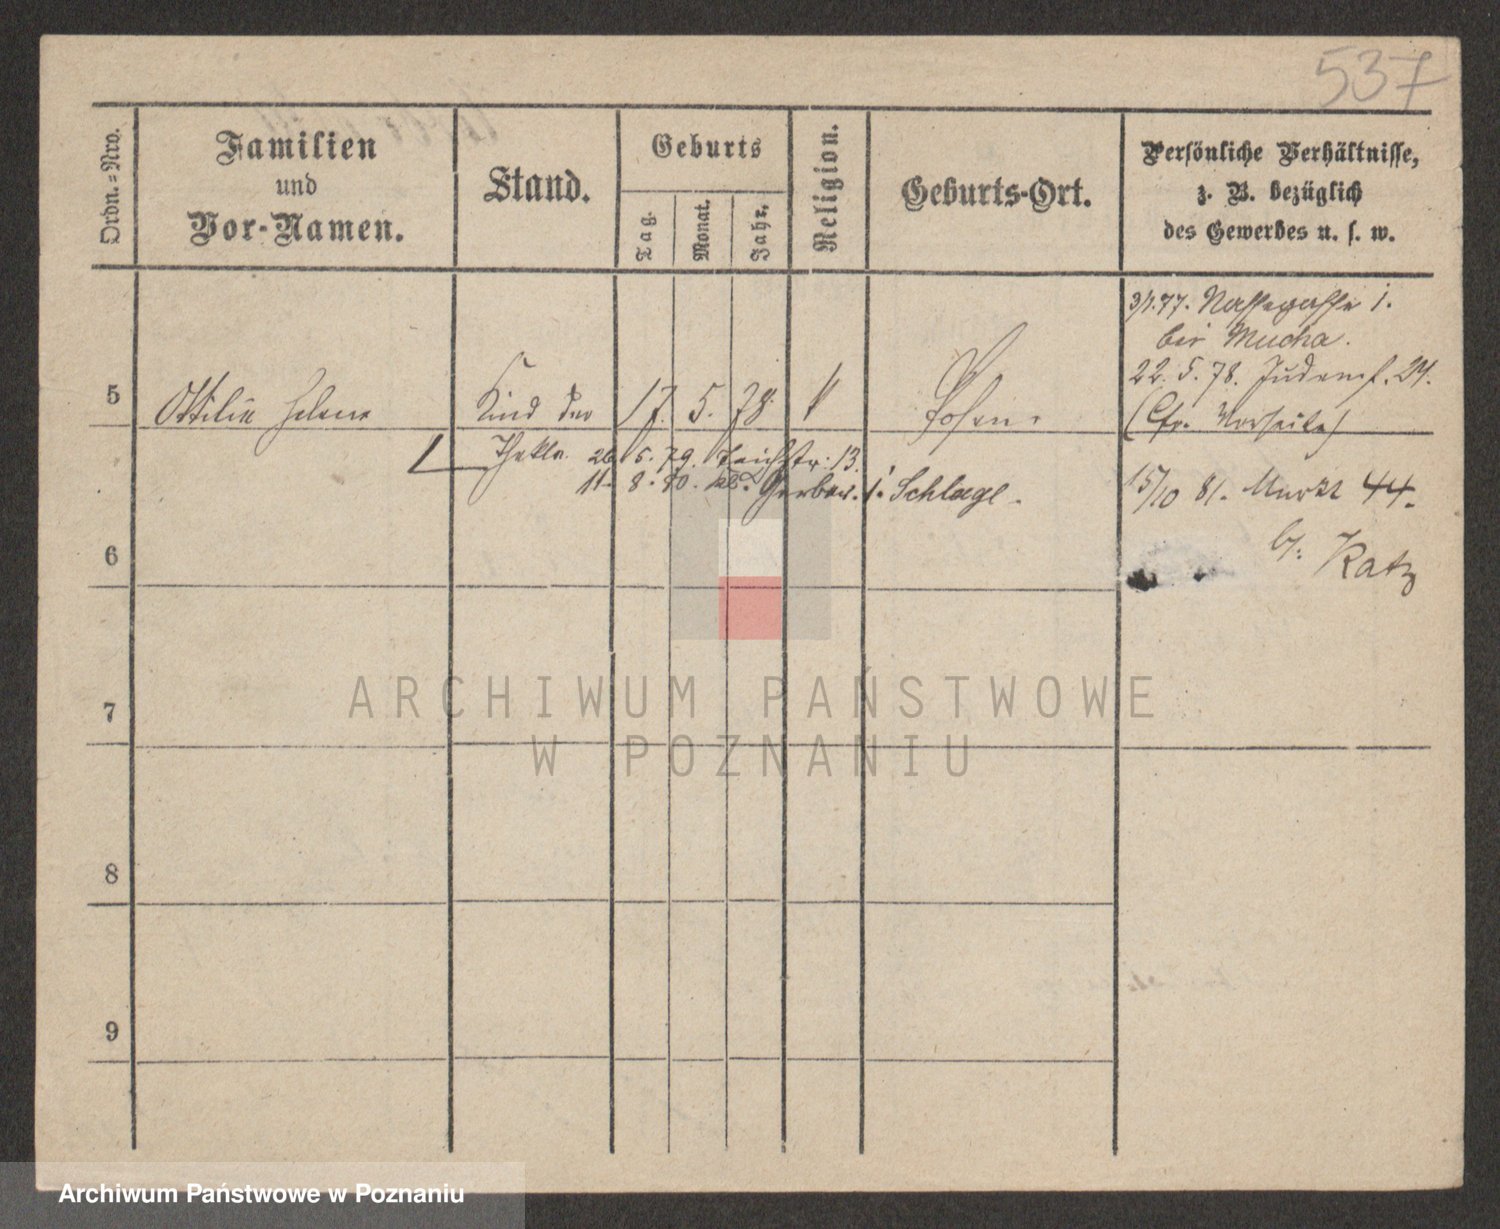 537
Ordn.=Nro.
Familien
und
Vor-Namen.
Stand.
Geburts
Tag.
Monat.
Jahr.
Religion.
Geburts-Ort.
Persönliche Verhältnisse,
z. B. bezüglich
des Gewerbes u. s. w.
3/1.77. Nassegasse 1.
bei Mucha.
22. 5. 78. Judenst. 24.
5 Ottilie Helene Kind der 17. 5. 78. Posen.
(Cfr. Vorseite)
Thekla 26. 5. 79. Teichstr. 13.
11. 8. 80. kl. Gerber. 1. Schlage.
15/10 81. Markt 44.
b. Katz
6
7
8
9
ARCHIWUM PAŃSTWOWE
W POZNANIU
Archiwum Państwowe w Poznaniu